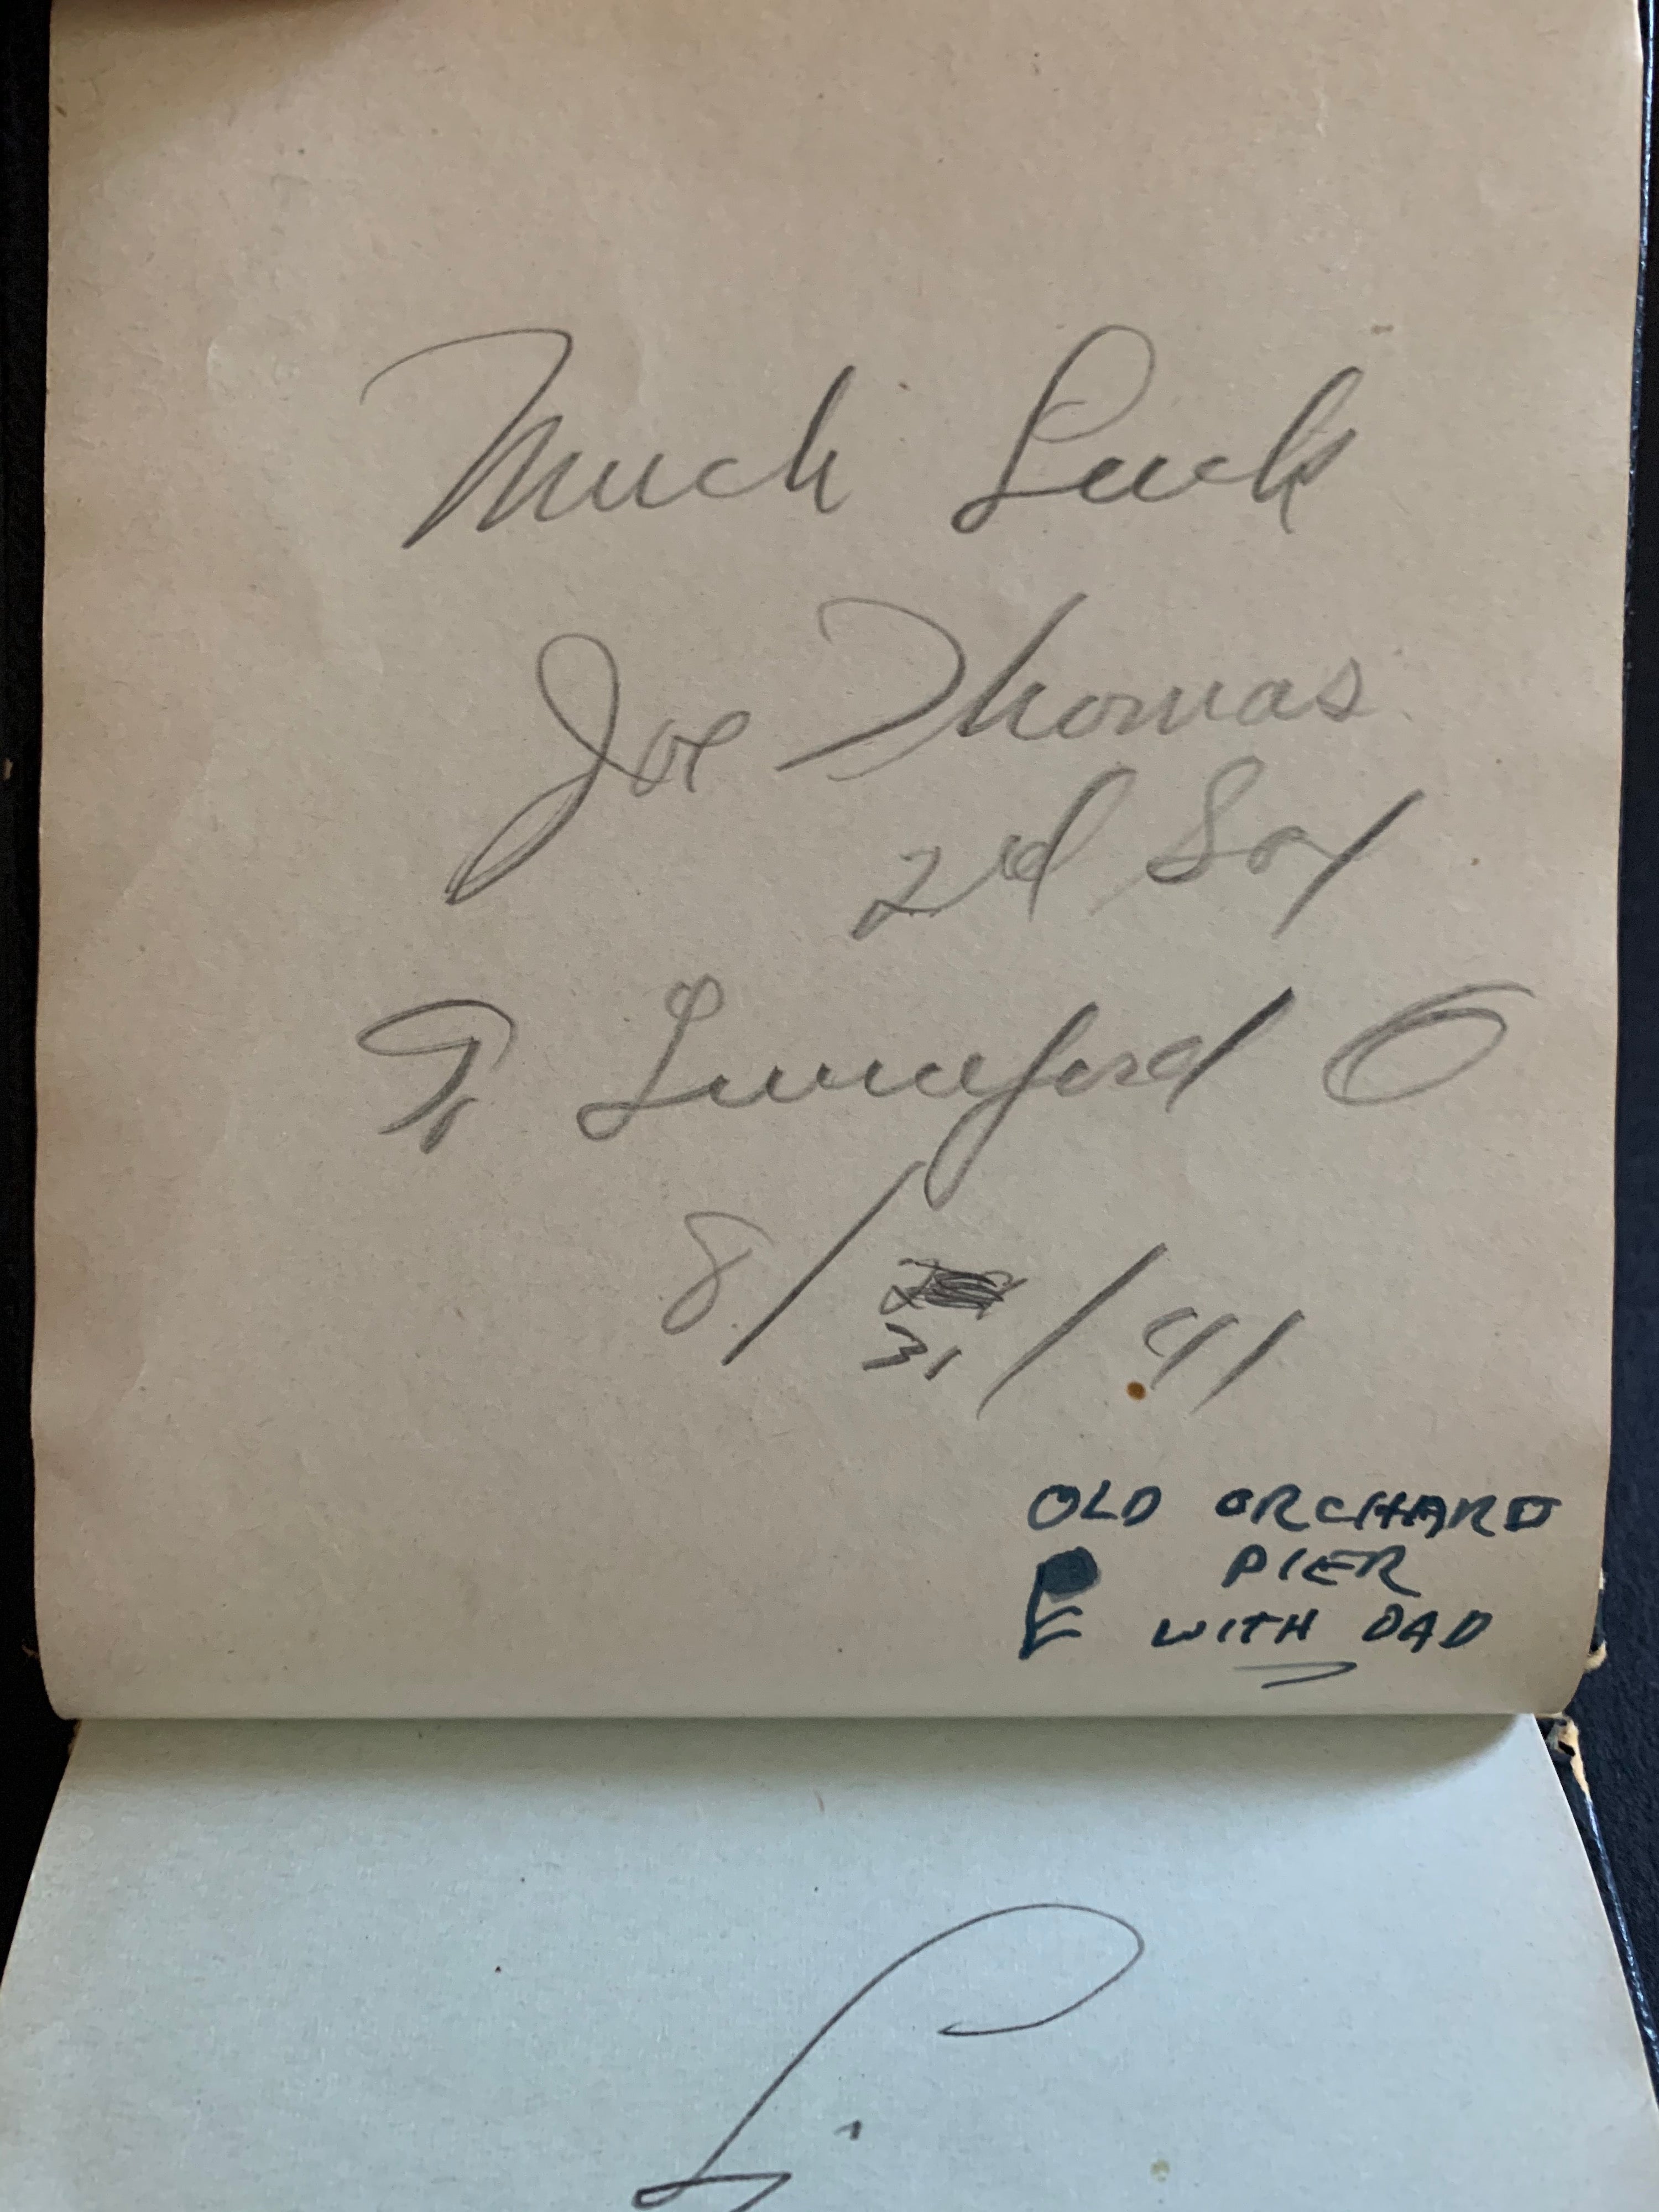 Much Luck
Joe Thomas
2nd Sax
J. Lunceford O
8/31/41
OLD ORCHARD
PIER
WITH DAD